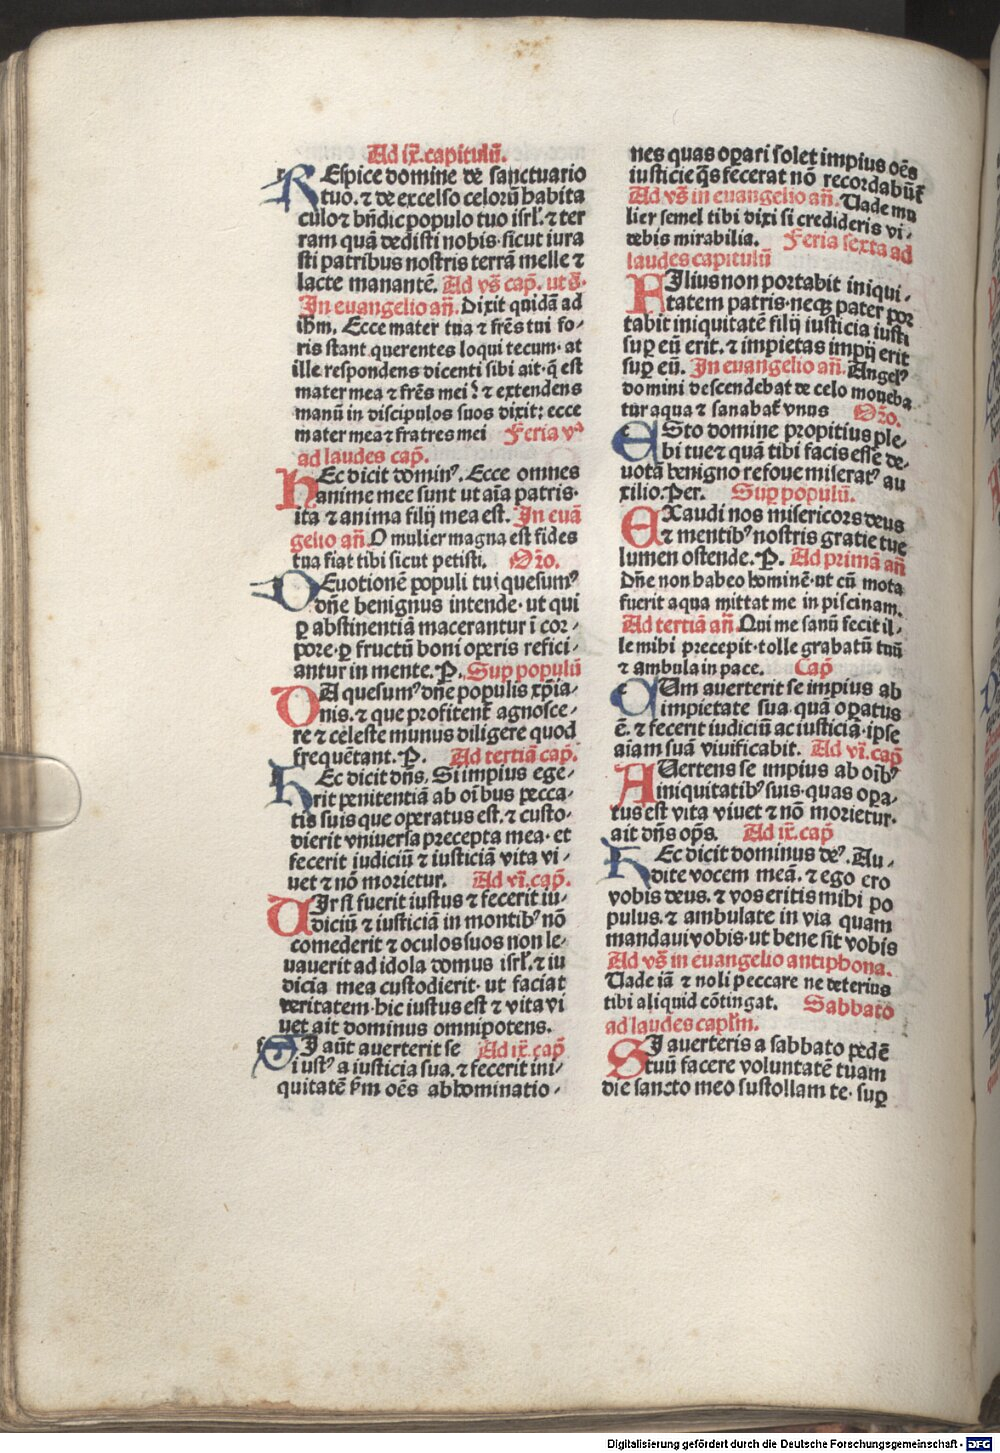 Ad ix. capitulū.
REspice domine de sanctuario
tuo. ⁊ de excelso celorū habita
culo ⁊ bn̄dic populo tuo isrl̄. ⁊ ter
ram quā dedisti nobis· sicut iura
sti patribus nostris terrā melle ⁊
lacte manantē. Ad vs̄ cap̄. ut s̄·
In euangelio an̄. Dixit quidā ad
ihm̄. Ecce mater tua ⁊ frēs tui fo⸗
ris stant querentes loqui tecum· at
ille respondens dicenti sibi ait· q̄ est
mater mea ⁊ frēs mei? ⁊ extendens
manū in discipulos suos dixit: ecce
mater mea ⁊ fratres mei Feria vᵃ
ad laudes cap̄.
HEc dicit dominꝰ. Ecce omnes
anime mee sunt ut aīa patris·
ita ⁊ anima filij mea est. In euā
gelio an̄. O mulier magna est fides
tua fiat tibi sicut petisti. Or̄o.
DEuotionē populi tui quesumꝰ
dn̄e benignus intende· ut qui
ꝑ abstinentiā macerantur ī cor⸗
pore· ꝑ fructū boni operis refici⸗
antur in mente. P. Sup populū
DA quesumꝰ dn̄e populis xp̄ia⸗
nis. ⁊ que profitent̄ agnosce⸗
re ⁊ celeste munus diligere quod
frequētant. P. Ad tertiā cap̄.
HEc dicit dn̄s. Si impius ege⸗
rit penitentiā ab oībus pecca⸗
tis suis que operatus est. ⁊ custo⸗
dierit vniuersa precepta mea· et
fecerit iudiciū ⁊ iusticiā vita vi⸗
uet ⁊ nō morietur. Ad vi. cap̄.
UIr si fuerit iustus ⁊ fecerit iu⸗
diciū ⁊ iusticiā in montibꝰ nō
comederit ⁊ oculos suos non le⸗
uauerit ad idola domus isrl̄. ⁊ iu
dicia mea custodierit· ut faciat
veritatem· hic iustus est ⁊ vita vi
uet ait dominus omnipotens.
SI aūt auerterit se Ad ix. cap̄
iustꝰ a iusticia sua. ⁊ fecerit ini⸗
quitatē ẜm oēs abhominatio⸗
nes quas oꝑari solet impius oēs
iusticie q̄s fecerat nō recordabūt̄
Ad vs̄ in euangelio an̄. Uade mu
lier semel tibi dixi si credideris vi⸗
debis mirabilia. Feria sexta ad
laudes capitulū
FIlius non portabit iniqui⸗
tatem patris· neqꝫ pater por
tabit iniquitatē filij iusticia iusti
suꝑ eū erit. ⁊ impietas impij erit
suꝑ eū. In euangelio an̄. Angelꝰ
domini descendebat de celo moueba
tur aqua ⁊ sanabat̄ vnus Or̄o.
ESto domine propitius ple⸗
bi tue ⁊ quā tibi facis esse de⸗
uotā benigno refoue miseratꝰ au
xilio. Per. Suꝑ populū.
EXaudi nos misericors deus
⁊ mentibꝰ nostris gratie tue
lumen ostende. P. Ad primā an̄
Dn̄e non habeo hominē· ut cū mota
fuerit aqua mittat me in piscinam.
Ad tertiā an̄. Qui me sanū fecit il⸗
le mihi precepit· tolle grabatū tuū
⁊ ambula in pace. Cap̄
CUm auerterit se impius ab
impietate sua quā oꝑatus
ē. ⁊ fecerit iudiciū ac iusticiā· ipse
aīam suā viuificabit. Ad vi. cap̄
AUertens se impius ab oībꝰ
iniquitatibꝰ suis· quas oꝑa⸗
tus est vita viuet ⁊ nō morietur·
ait dn̄s op̄s. Ad ix. cap̄
HEc dicit dominus deꝰ. Au⸗
dite vocem meā. ⁊ ego ero
vobis deus. ⁊ vos eritis mihi po
pulus. ⁊ ambulate in via quam
mandaui vobis· ut bene sit vobis
Ad vs̄ in euangelio antiphona.
Uade iā ⁊ noli peccare ne deterius
tibi aliquid cōtingat. Sabbato
ad laudes capl̄m.
SI auerteris a sabbato pedē
tuū facere voluntatē tuam
die sancto meo sustollam te· suꝑ
Digitalisierung gefördert durch die Deutsche Forschungsgemeinschaft - DFG